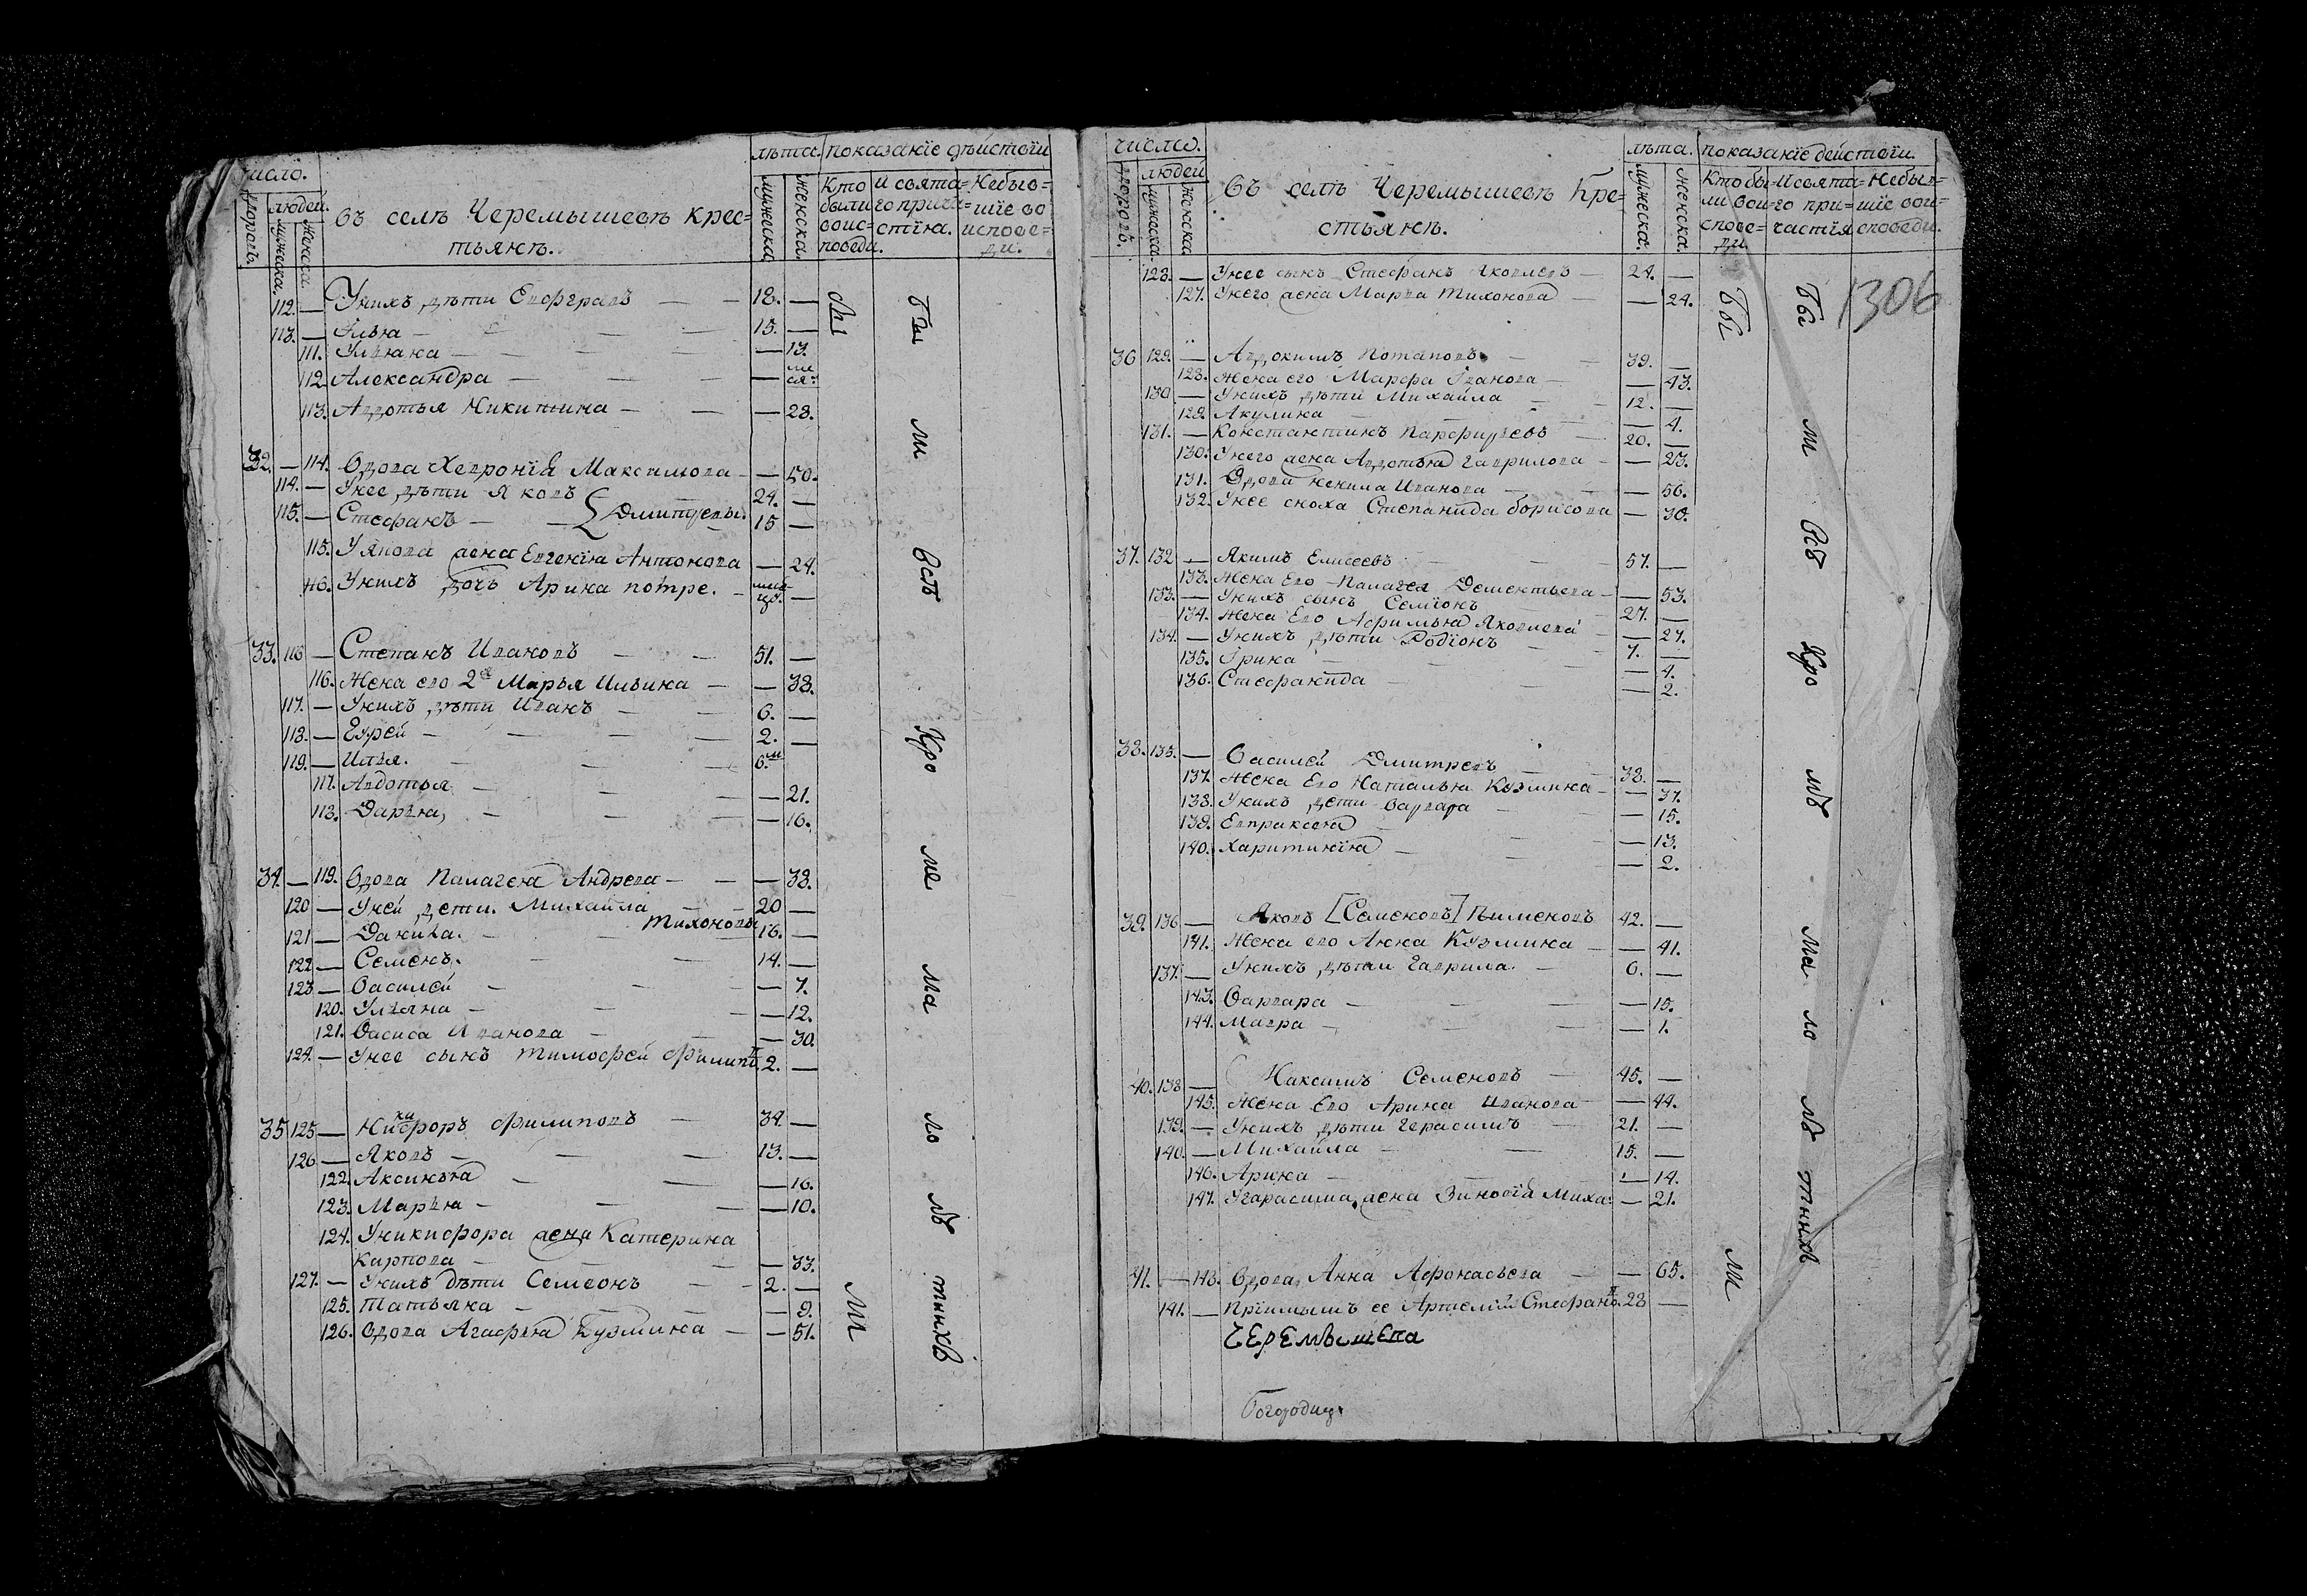 число. лѣта. показанїе дѣйствїи
Дворовъ. людей. въ селѣ Черемышевѣ крес= мужеска. женска. Кто были во исповѣди. и свята=го прича=стїя. Небыв=шїе во исповѣ=ди.
мужеска. женска. тьянъ.
112. — У нихъ дѣти Евфграпъ — — 18. —
113. — Илья — — — 15. —
111. Ульяна — — — — 13.
112. Александра — — — —
113. Авдотья Никитина — — — 28.
32. — 114. Вдова Хевронїя Максимова — — 50.
114. — У нее дѣти Яковъ 24. —
115. — Стефанъ — — { Дмитревы. 15 —
115. У Якова жена Евгенїя Антонова — 24.
116. У нихъ дочь Арина —
33. 116 — Степанъ Ивановъ — — 51. —
116. Жена его 2я Марья Ильина — — 38.
117. — У нихъ дѣти Иванъ — — 6. —
118. — — — — 2. —
119. — Илья. — — 6.м
117. Авдотья — — — — 21.
118. Дарья, — — — — 16.
34. — 119. Вдова Палагея Андрева — — — 38.
120 — У ней дети. Михайла — 20 —
121 — Данила. — Тихоновы 16. —
122 — Семенъ. — — 14. —
123 — Василей — — — 7.
120. Ульяна — — — 12.
121. Васиса Иванова — — — 30.
124. — У нее сынъ Тимофей Филипо 2. —
35 125 — Никифоръ Филиповъ — 34. —
126 — Яковъ — — — 13. —
122. Аксинья — — — 16.
123. Марья — — — — 10.
124. У Никифора жена Катерина
Карпова — — — — 33.
127. — У нихъ дѣти Семеонъ — — 2. —
125. Татьяна — — — — 9.
126. Вдова Агафья Кузмина — — 51.
Бы
ли
Бы
ли
всѣ
Кро
ме
ма
ло
лѣ
тныхъ
число. лѣта. показанїе действїи.
дворовъ. людей въ селѣ Черемышевѣ Кре= мужеска. женска. Кто бы=ли во и=спове=ди И свята=го при=частїя Небыв=шїе во и=споведи.
мужеска женска стьянъ.
128. — У нее сынъ Стефанъ Яковлевъ — 24. —
127. У него жена Марья Тихонова — — 24.
1306
36 129. — Авдокимъ Потаповъ — — 39. —
128. Жена его Марфа Иванова — — 43.
130 — У нихъ дѣти Михайла — 12. —
129. Акулина — — — 4.
131. — Константинъ Парфирьевъ — 20. —
130. У него жена Авдотья Гаврилова — — 23.
131. Вдова Ненила Иванова — — — 56.
132. У нее сноха Степанида Борисова — 30.
37. 132 — Якимъ Елисеевъ — — 57. —
133. Жена Его Палагея Дементьева — — 53.
133. — У нихъ сынъ Семїонъ 27. —
134. Жена Его Афимья Яковлева — — 27.
134. — У нихъ дѣти Родїонъ — 7. —
135. Ирина — — — — 4.
136. Стефанида — — — 2.
38. 135. — Василей Дмитревъ — — 38. —
137. Жена Его Наталья Кузмина — — 37.
138. У нихъ дети Варвара — — 15.
139. Евпраксея — — 13.
140. Харитинїя — — — 2.
39. 136 — Яковъ [Семеновъ] Пименовъ 42. —
141. Жена его Анна Кузмина — — 41.
137. — У нихъ дѣти Гаврила. — 6. —
143. Варвара — — — — 15.
144. Мавра — — — — 1.
40. 138 — Максимъ Семеновъ — 45. —
145. Жена Его Арина Иванова — — 44.
139. — У нихъ дѣти Герасимъ — 21. —
140. — Михайла — — 15. —
146. Арина — — — 14.
147. У Гарасима жена Зиновїя Миха: — 21.
41. — 148. Вдова Анна Афонасьева — — 65.
141. — Прїимышъ ее Артемїй Стефано 28 —
Черемышева
Богородиц
Бы
ли
Бы
ли
всѣ
Кро
мѣ
ма
ло
лѣ
тныхъ